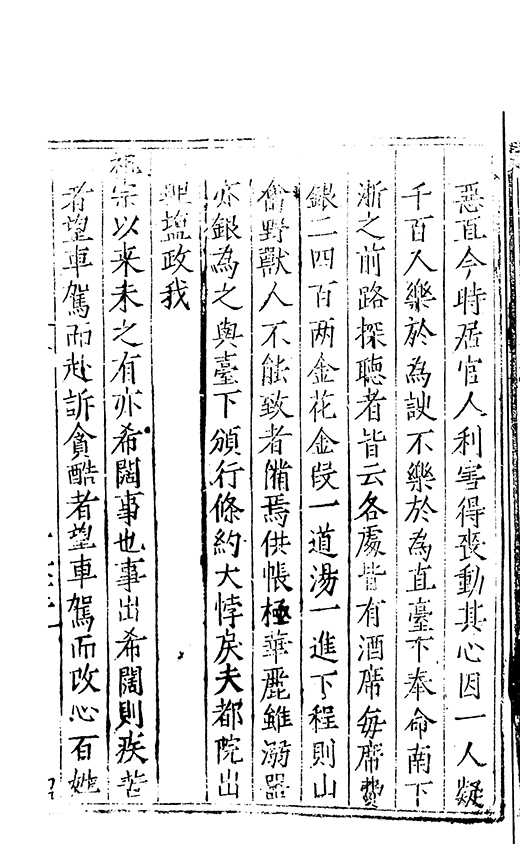 惡直今時居官人利害得喪動其心因一人疑
千百人樂於為諛不樂於為直臺下奉命南下
浙之前路探聽者皆云各處皆有酒席每席費
銀二四百两金花金叚一道湯一進下程則山
禽野獸人不能致者備焉供帳極華麗雖溺器
亦銀為之與臺下頒行條約大悖戾夫都院出
理塩政我
祖宗以来未之有亦希闊事也事出希闊則疾苦
者望車駕而赴訴貪酷者望車駕而改心百姓